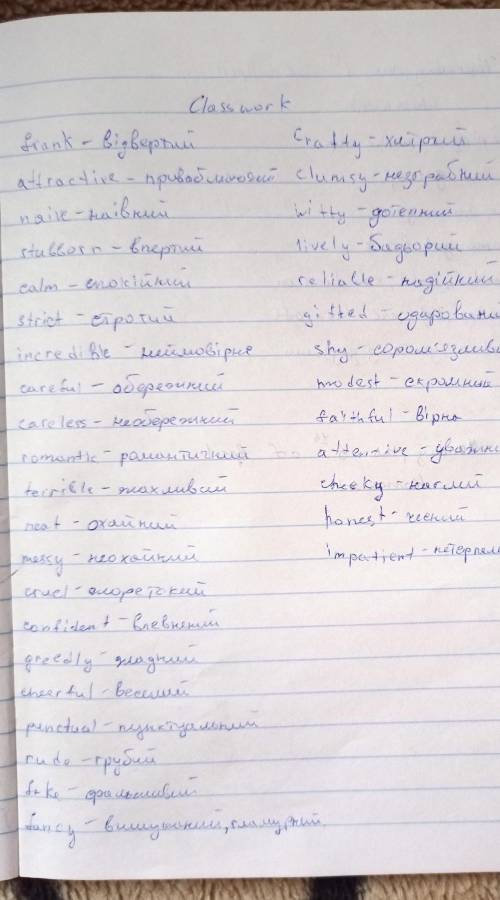 Classwork
frank - відвертий
attractive - привабливий
naive - наівний
stubborn - впертий
calm - спокійний
strict - строгий
incredible - неймовірне
careful - обережний
careless - необережний
romantic - романтичний
terrible - жахливий
neat - охайний
messy - неохайний
cruel -
confident - впевнений
greedly - жадний
cheerful - веселий
punctual - пунктуальний
rude - грубий
fake - фальшивий
fancy - вишуканий, гламурний
crafty - хитрий
clumsy - незграбний
witty - дотепний
lively - бадьорий
reliable - надійний
gifted - обдаровани
shy - сором'язлив
modest - скромний
faithful - вірна
attentive - уважни
cheeky - наглий
honest - чесний
impatient - нетерпел